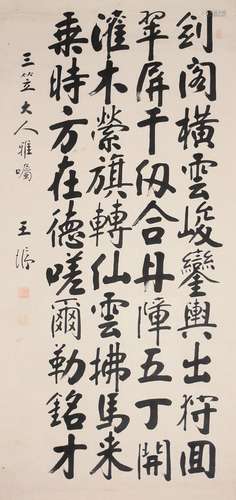 劍閣橫雲峻鑾輿出狩回
翠屏千仞合丹障五丁開
灌木縈旗轉仙雲拂馬来
乘時方在德嗟爾勒銘才
三笠大人雅囑
王